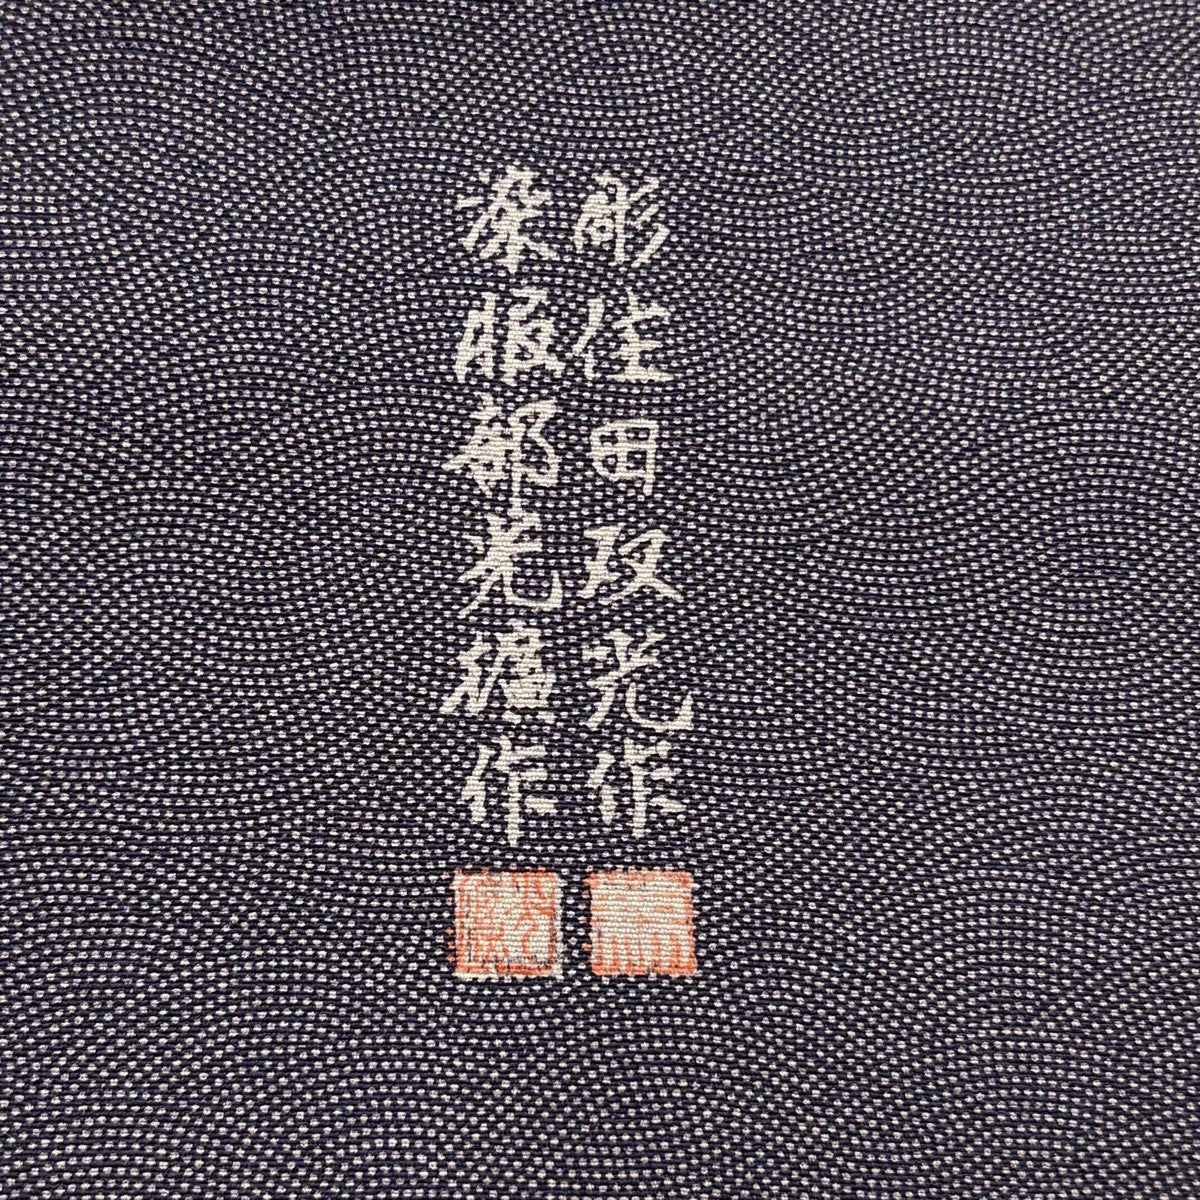 彫住田攻光作
染服部光擴作